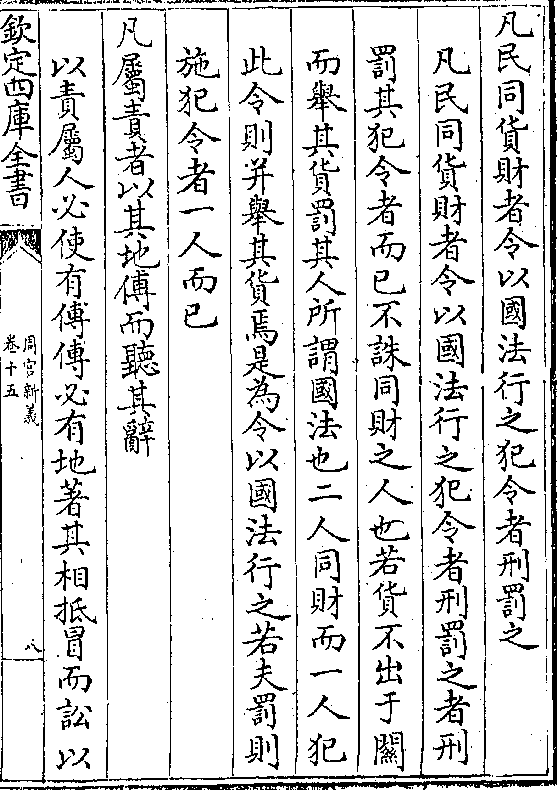 凡民同貨財者令以國法行之犯令者刑罰之
凡民同貨財者令以國法行之犯令者刑罰之者刑
罰其犯令者而已不誅同財之人也若貨不出于關
而舉其貨罰其人所謂國法也二人同財而一人犯
此令則并舉其貨焉是為令以國法行之若夫罰則
施犯令者一人而已
凡屬責者以其地傅而聽其辭
以責屬人必使有傅傅必有地著其相抵冒而訟以
欽定四庫全書
周官新義
卷十五
八